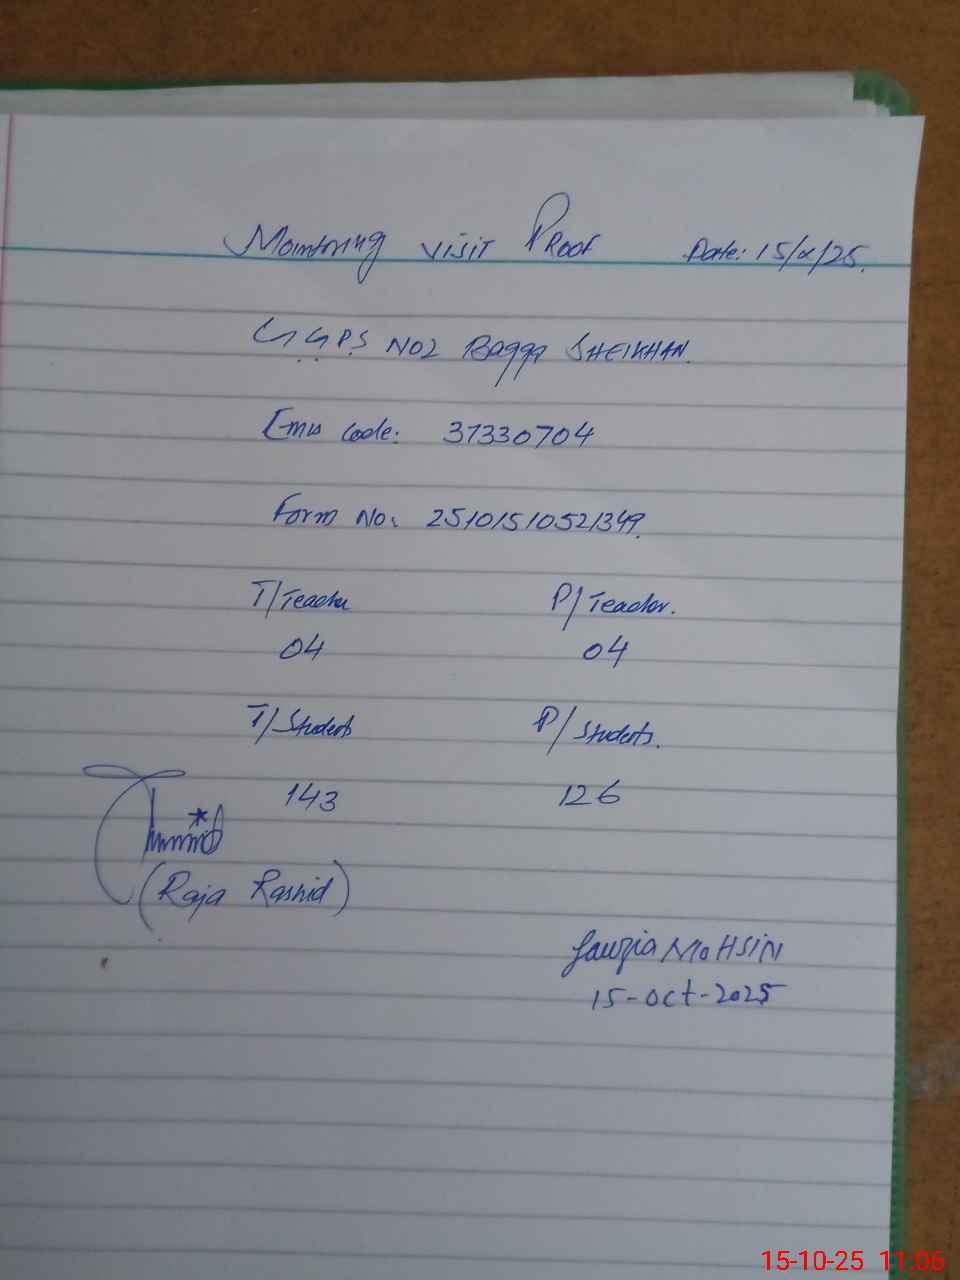 Monitoring visit Proof Date: 15/x/25.
GGPS NO2 Bagga SHEIKHAN.
Emis Code: 37330704
Form No: 25101510521349.
T/Teacher P/Teacher.
04 04
T/Students P/Students.
143 126
(Raja Rashid)
Fauzia MOHSIN
15-Oct-2025
15-10-25 11:06